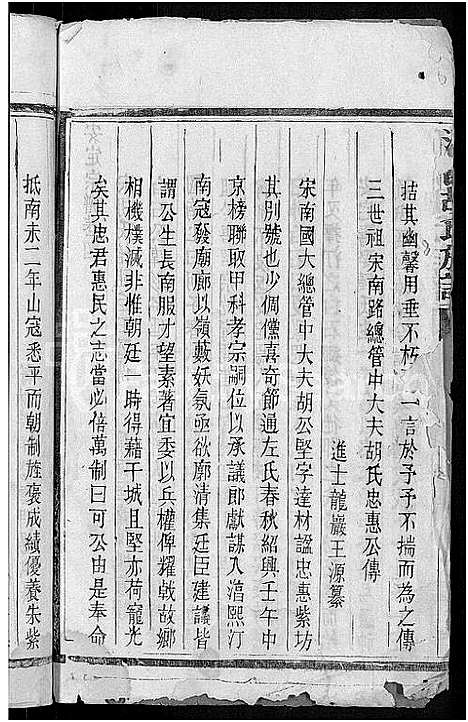 拮其幽馨用垂不朽一言於予予不揣而為之傳
三世祖宋南路總管中大夫胡氏忠惠公傳
進士龍巖王源纂
宋南國大總管中大夫胡公堅字達材諡忠惠紫坊
其別號也少倜儻喜奇節通左氏春秋紹興壬午中
京榜聯取甲科孝宗嗣位以承議郎獻謀入涖熙汀
南冦發廟廊以嶺藪妖氛亟欲廓清集廷臣建議皆
謂公生長南服才望素著宜委以兵權俾耀戟故鄉
相機樸滅非惟朝廷一時得藉干城且堅亦荷寵光
矣其忠君惠民之志當必倍萬制曰可公由是奉命
抵南未二年山寇悉平而朝制旌褒成績優養朱紫